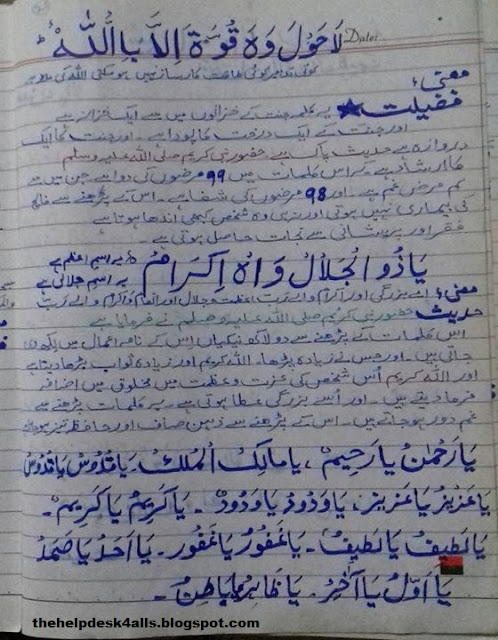 Date:
لَا حَوْلَ وَهَ قُوَّةَ اِلَّا بِاللّٰهِ
معنیٰ: کوئی تدبیر کوئی طاقت کارساز نہیں ہو سکتی اللہ کی مدد
فضیلت ★ یہ کلمہ جنت کے خزانوں میں سے ایک خزانہ ہے
اور جنت کے ایک درخت کا پودا ہے۔ اور جنت کا ایک
دروازہ ہے حدیث پاک ہے حضور نبی کریم صلی اللہ علیہ وسلم
کا ارشاد ہے کہ اس کلمات میں 99 مرضوں کی دوا ہے جن میں سے
کم مرض غم ہے۔ اور 98 مرضوں کی شفا ہے۔ اس کے پڑھنے سے فالج
کی بیماری نہیں ہوتی اور نہ ہی وہ شخص کبھی اندھا ہوتا ہے
فقر اور پریشانی سے نجات حاصل ہوتی ہے۔
یَا ذُو الْجَلَالِ وَاہ اِکْرَامُ یہ اسم اعظم ہے
یہ اسم جلالی ہے
معنیٰ: اے بزرگی اور اکرام والے رب عظمت و جلال اور انعام و اکرام والے رب
حدیث حضور نبی کریم صلی اللہ علیہ وسلم نے فرمایا ہے
اس کلمات کے پڑھنے سے دو لاکھ نیکیاں اس کے نامہ اعمال میں لکھدی
جاتی ہیں۔ اور جس نے زیادہ پڑھا۔ اللہ کریم اور زیادہ ثواب بڑھا دیتا ہے
اور اللہ کریم اُس شخص کی عزت و عظمت میں مخلوق میں اضافہ
فرما دیتے ہیں۔ اور اُسے بزرگی عطا ہوتی ہے۔ یہ کلمات پڑھنے سے
غم دور ہو جاتے ہیں۔ اس کے پڑھنے سے ذہن صاف اور حافظہ تیز ہوجاتا
یَا رَحْمٰنُ یَا رَحِیْمُ، یَا مَالِکَ الْمُلْکِ۔ یَا قُدُّوْسُ یَا قُدُّوْسُ
یَا عَزِیْزُ یَا عَزِیْزُ، یَا وَدُوْدُ یَا وَدُوْدُ۔ یَا کَرِیْمُ یَا کَرِیْمُ۔
یَا لَطِیْفُ یَا لَطِیْفُ۔ یَا غَفُوْرُ یَا غَفُوْرُ۔ یَا اَحَدُ یَا صَمَدُ
یَا اَوَّلُ یَا آخِرُ۔ یَا ظَاہِرُ یَا بَاطِنُ۔
thehelpdesk4alls.blogspot.com